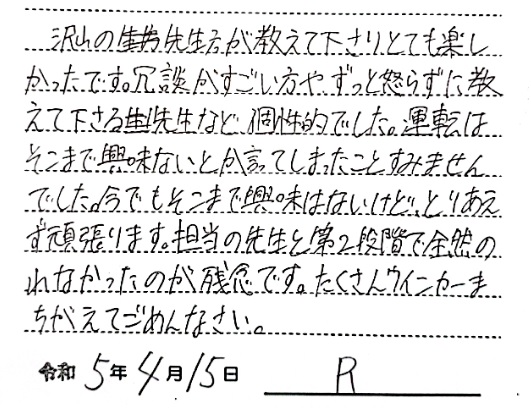 沢山の先生方が教えて下さりとても楽し
かったです。冗談がすごい方や、ずっと怒らずに教
えて下さる先生など、個性的でした。運転は
そこまで興味ないとか言ってしまったことすみません
でした。今でもそこまで興味はないけど、とりあえ
ず頑張ります。担当の先生と第2段階で全然の
れなかったのが残念です。たくさんウインカーま
ちがえてごめんなさい。
令和 5年 4月 15日 R